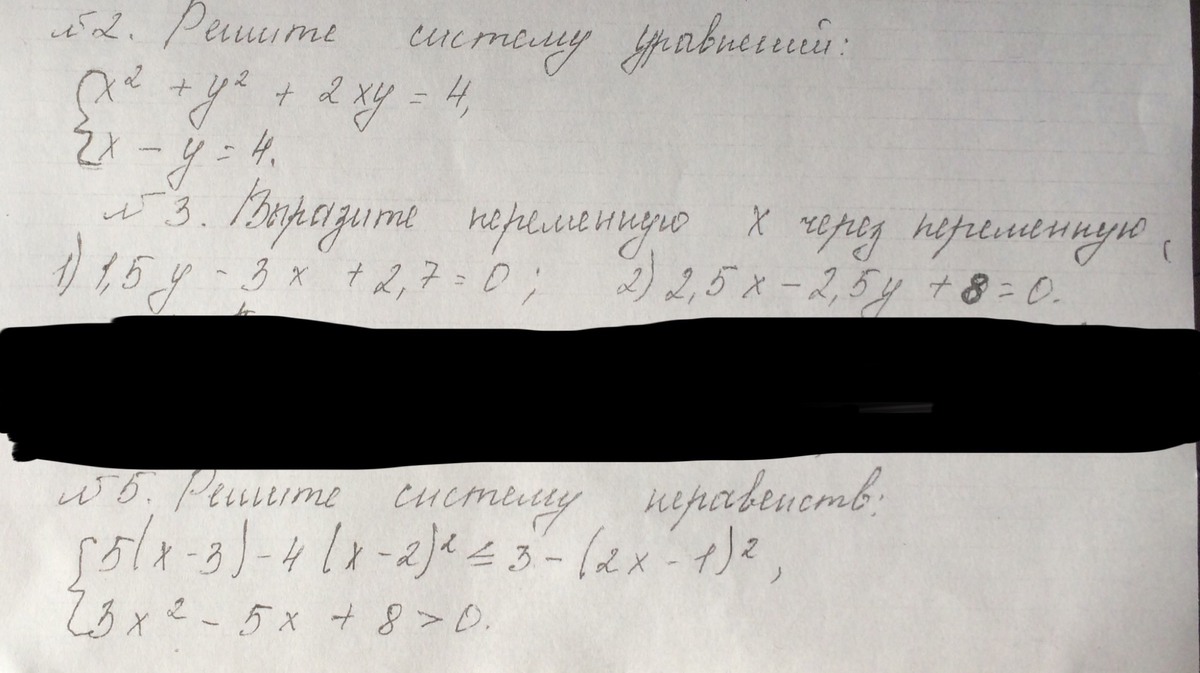 №2. Решите систему уравнений:
{x² + y² + 2xy = 4,
{x - y = 4.
№3. Выразите переменную x через переменную,
1) 1,5y - 3x + 2,7 = 0; 2) 2,5x - 2,5y + 8 = 0.
№5. Решите систему неравенств:
{5(x-3) - 4(x-2)² ≤ 3 - (2x-1)²,
{3x² - 5x + 8 > 0.